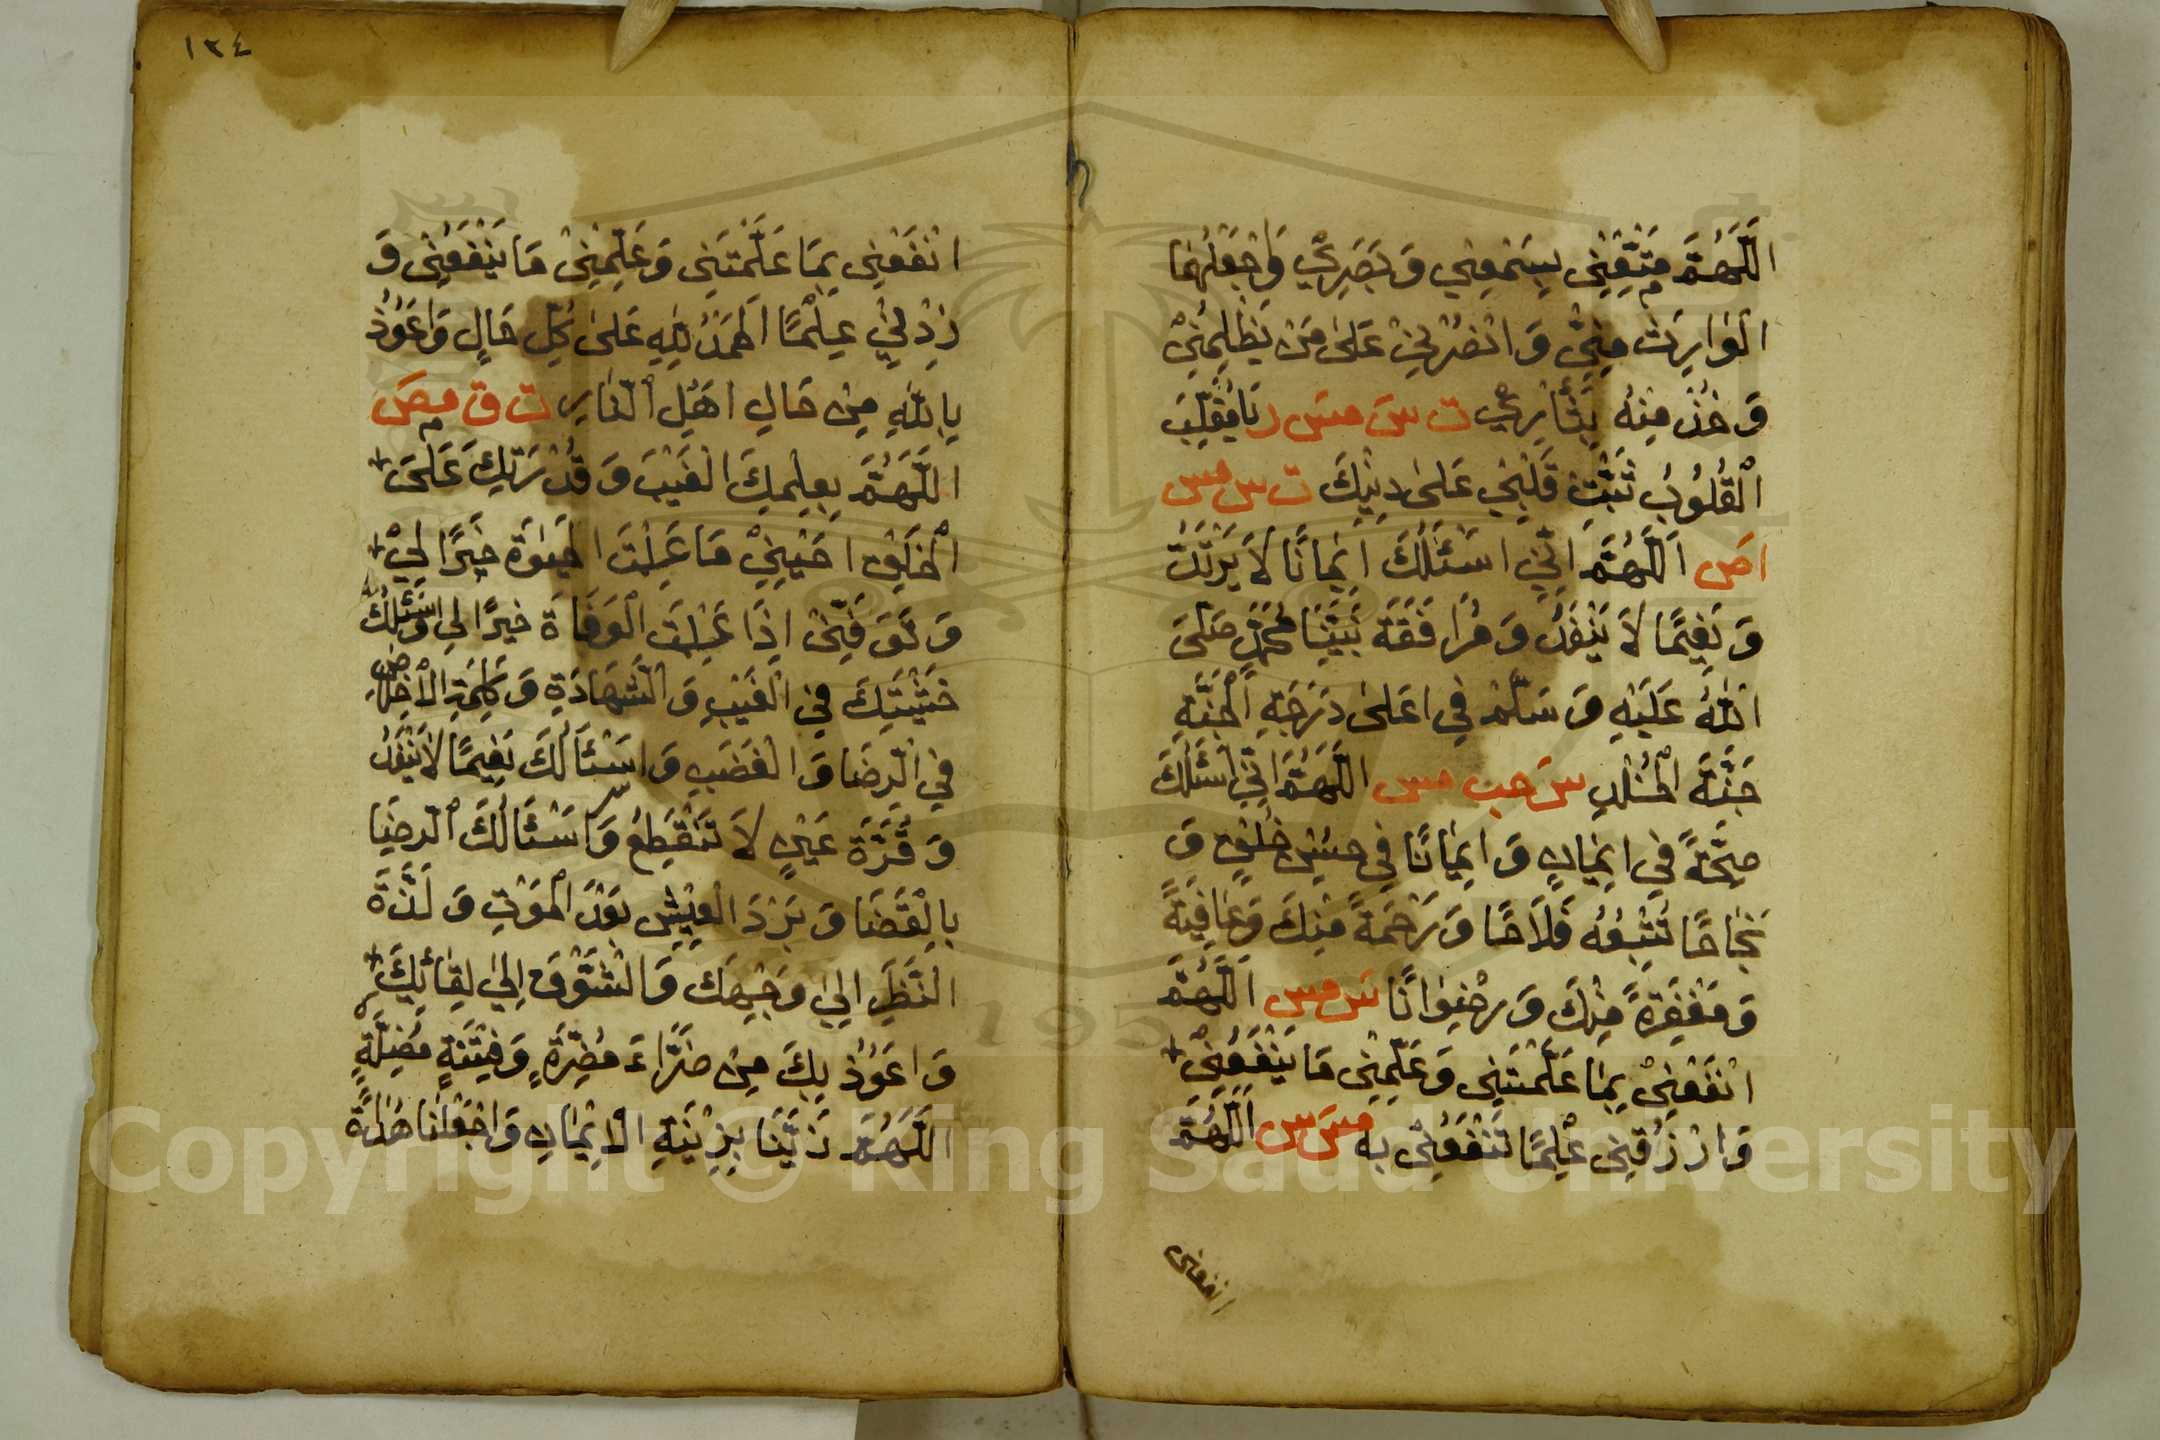 اَللَّهُمَّ مَتِّعْنِي بِسَمْعِي وَبَصَرِي وَاجْعَلْهُمَا
الْوَارِثَ مِنِّي وَانْصُرْنِي عَلَى مَنْ يَظْلِمُنِي
وَخُذْ مِنْهُ بِثَأْرِي ت س مس ر يَا مُقَلِّبَ
الْقُلُوبِ ثَبِّتْ قَلْبِي عَلَى دِينِكَ ت س مس
اص اَللَّهُمَّ اِنِّي اَسْئَلُكَ اِيمَانًا لَا يَرْتَدُّ
وَنَعِيمًا لَا يَنْفَدُ وَمُرَافَقَةَ نَبِيِّنَا مُحَمَّدٍ صَلَّى
اللّٰهُ عَلَيْهِ وَسَلَّمَ فِي اَعْلَى دَرَجَةِ الْجَنَّةِ
جَنَّةِ الْخُلْدِ س حب مس اَللَّهُمَّ اِنِّي اَسْئَلُكَ
صِحَّةً فِي اِيمَانٍ وَاِيمَانًا فِي حُسْنِ خُلُقٍ وَ
نَجَاحًا تُتْبِعُهُ فَلَاحًا وَرَحْمَةً مِنْكَ وَعَافِيَةً
وَمَغْفِرَةً مِنْكَ وَرِضْوَانًا س مس اَللَّهُمَّ
انْفَعْنِي بِمَا عَلَّمْتَنِي وَعَلِّمْنِي مَا يَنْفَعُنِي
وَارْزُقْنِي عِلْمًا تَنْفَعُنِي بِهِ مس س اَللَّهُمَّ
انفعنى
١٣٤
انْفَعْنِي بِمَا عَلَّمْتَنِي وَعَلِّمْنِي مَا يَنْفَعُنِي وَ
زِدْنِي عِلْمًا اَلْحَمْدُ لِلّٰهِ عَلَى كُلِّ حَالٍ وَاَعُوذُ
بِاللّٰهِ مِنْ حَالِ اَهْلِ النَّارِ ت ق مص
اَللَّهُمَّ بِعِلْمِكَ الْغَيْبَ وَقُدْرَتِكَ عَلَى
الْخَلْقِ اَحْيِنِي مَا عَلِمْتَ الْحَيٰوةَ خَيْرًا لِي
وَتَوَفَّنِي اِذَا عَلِمْتَ الْوَفَاةَ خَيْرًا لِي وَاَسْئَلُكَ
خَشْيَتَكَ فِي الْغَيْبِ وَالشَّهَادَةِ وَكَلِمَةَ الْاِخْلَاصِ
فِي الرِّضَا وَالْغَضَبِ وَاَسْئَالُكَ نَعِيمًا لَا يَنْفَدُ
وَقُرَّةَ عَيْنٍ لَا تَنْقَطِعُ وَاَسْئَالُكَ الرِّضَا
بِالْقَضَا وَبَرْدَ الْعَيْشِ بَعْدَ الْمَوْتِ وَلَذَّةَ
النَّظَرِ اِلَى وَجْهِكَ وَالشَّوْقَ اِلَى لِقَائِكَ
وَاَعُوذُ بِكَ مِنْ ضَرَّاءَ مُضِرَّةٍ وَفِتْنَةٍ مُضِلَّةٍ
اَللَّهُمَّ زَيِّنَّا بِزِينَةِ الْاِيمَانِ وَاجْعَلْنَا هُدَاةً
Copyright © King Saud University